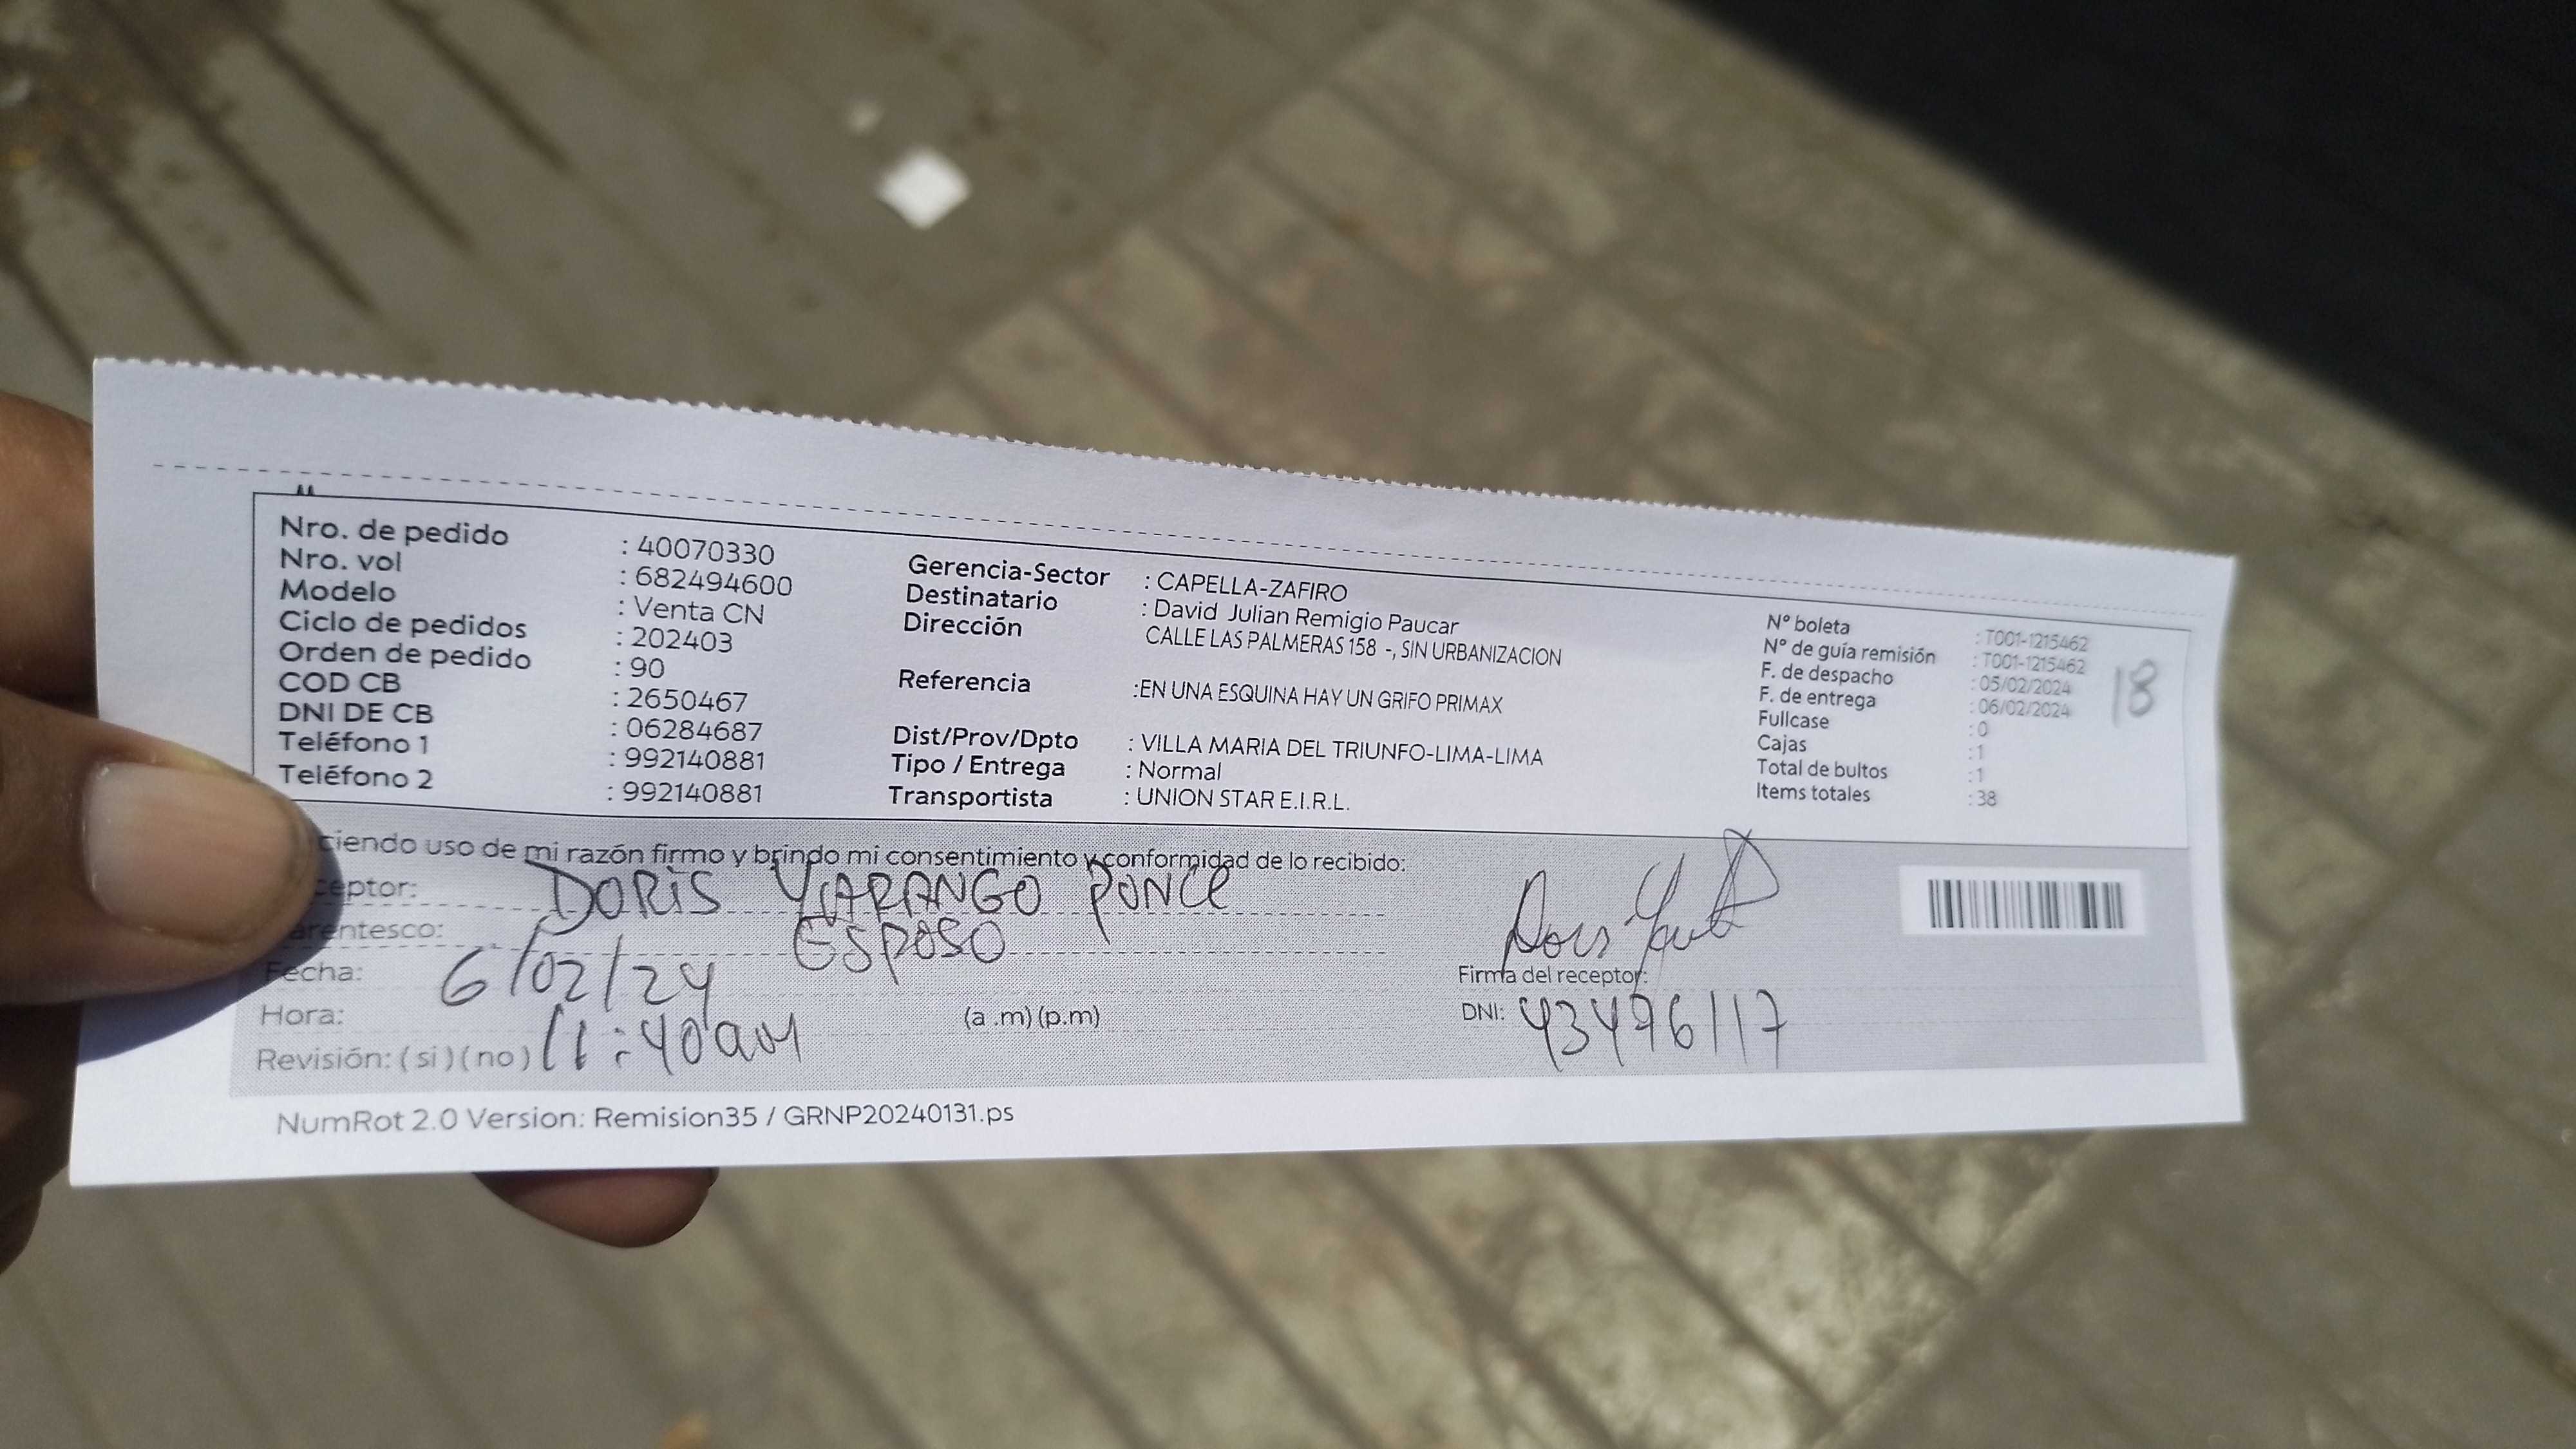 Nro. de pedido : 40070330
Nro. vol : 682494600
Modelo : Venta CN
Ciclo de pedidos : 202403
Orden de pedido : 90
COD CB : 2650467
DNI DE CB : 06284687
Teléfono 1 : 992140881
Teléfono 2 : 992140881
Gerencia-Sector : CAPELLA-ZAFIRO
Destinatario : David Julian Remigio Paucar
Dirección CALLE LAS PALMERAS 158 -, SIN URBANIZACION
Referencia :EN UNA ESQUINA HAY UN GRIFO PRIMAX
Dist/Prov/Dpto : VILLA MARIA DEL TRIUNFO-LIMA-LIMA
Tipo / Entrega : Normal
Transportista : UNION STAR E.I.R.L.
N° boleta : T001-1215462
N° de guía remisión : T001-1215462
F. de despacho : 05/02/2024
F. de entrega : 06/02/2024
Fullcase : 0
Cajas : 1
Total de bultos : 1
Items totales : 38
18
ciendo uso de mi razón firmo y brindo mi consentimiento y conformidad de lo recibido:
ceptor: DORIS YARANGO PONCE
arentesco: ESPOSO
Fecha: 6/02/24
Hora: 11:40am (a .m) (p.m)
Revisión: ( si ) ( no )
Firma del receptor:
DNI: 43476117
NumRot 2.0 Version: Remision35 / GRNP20240131.ps